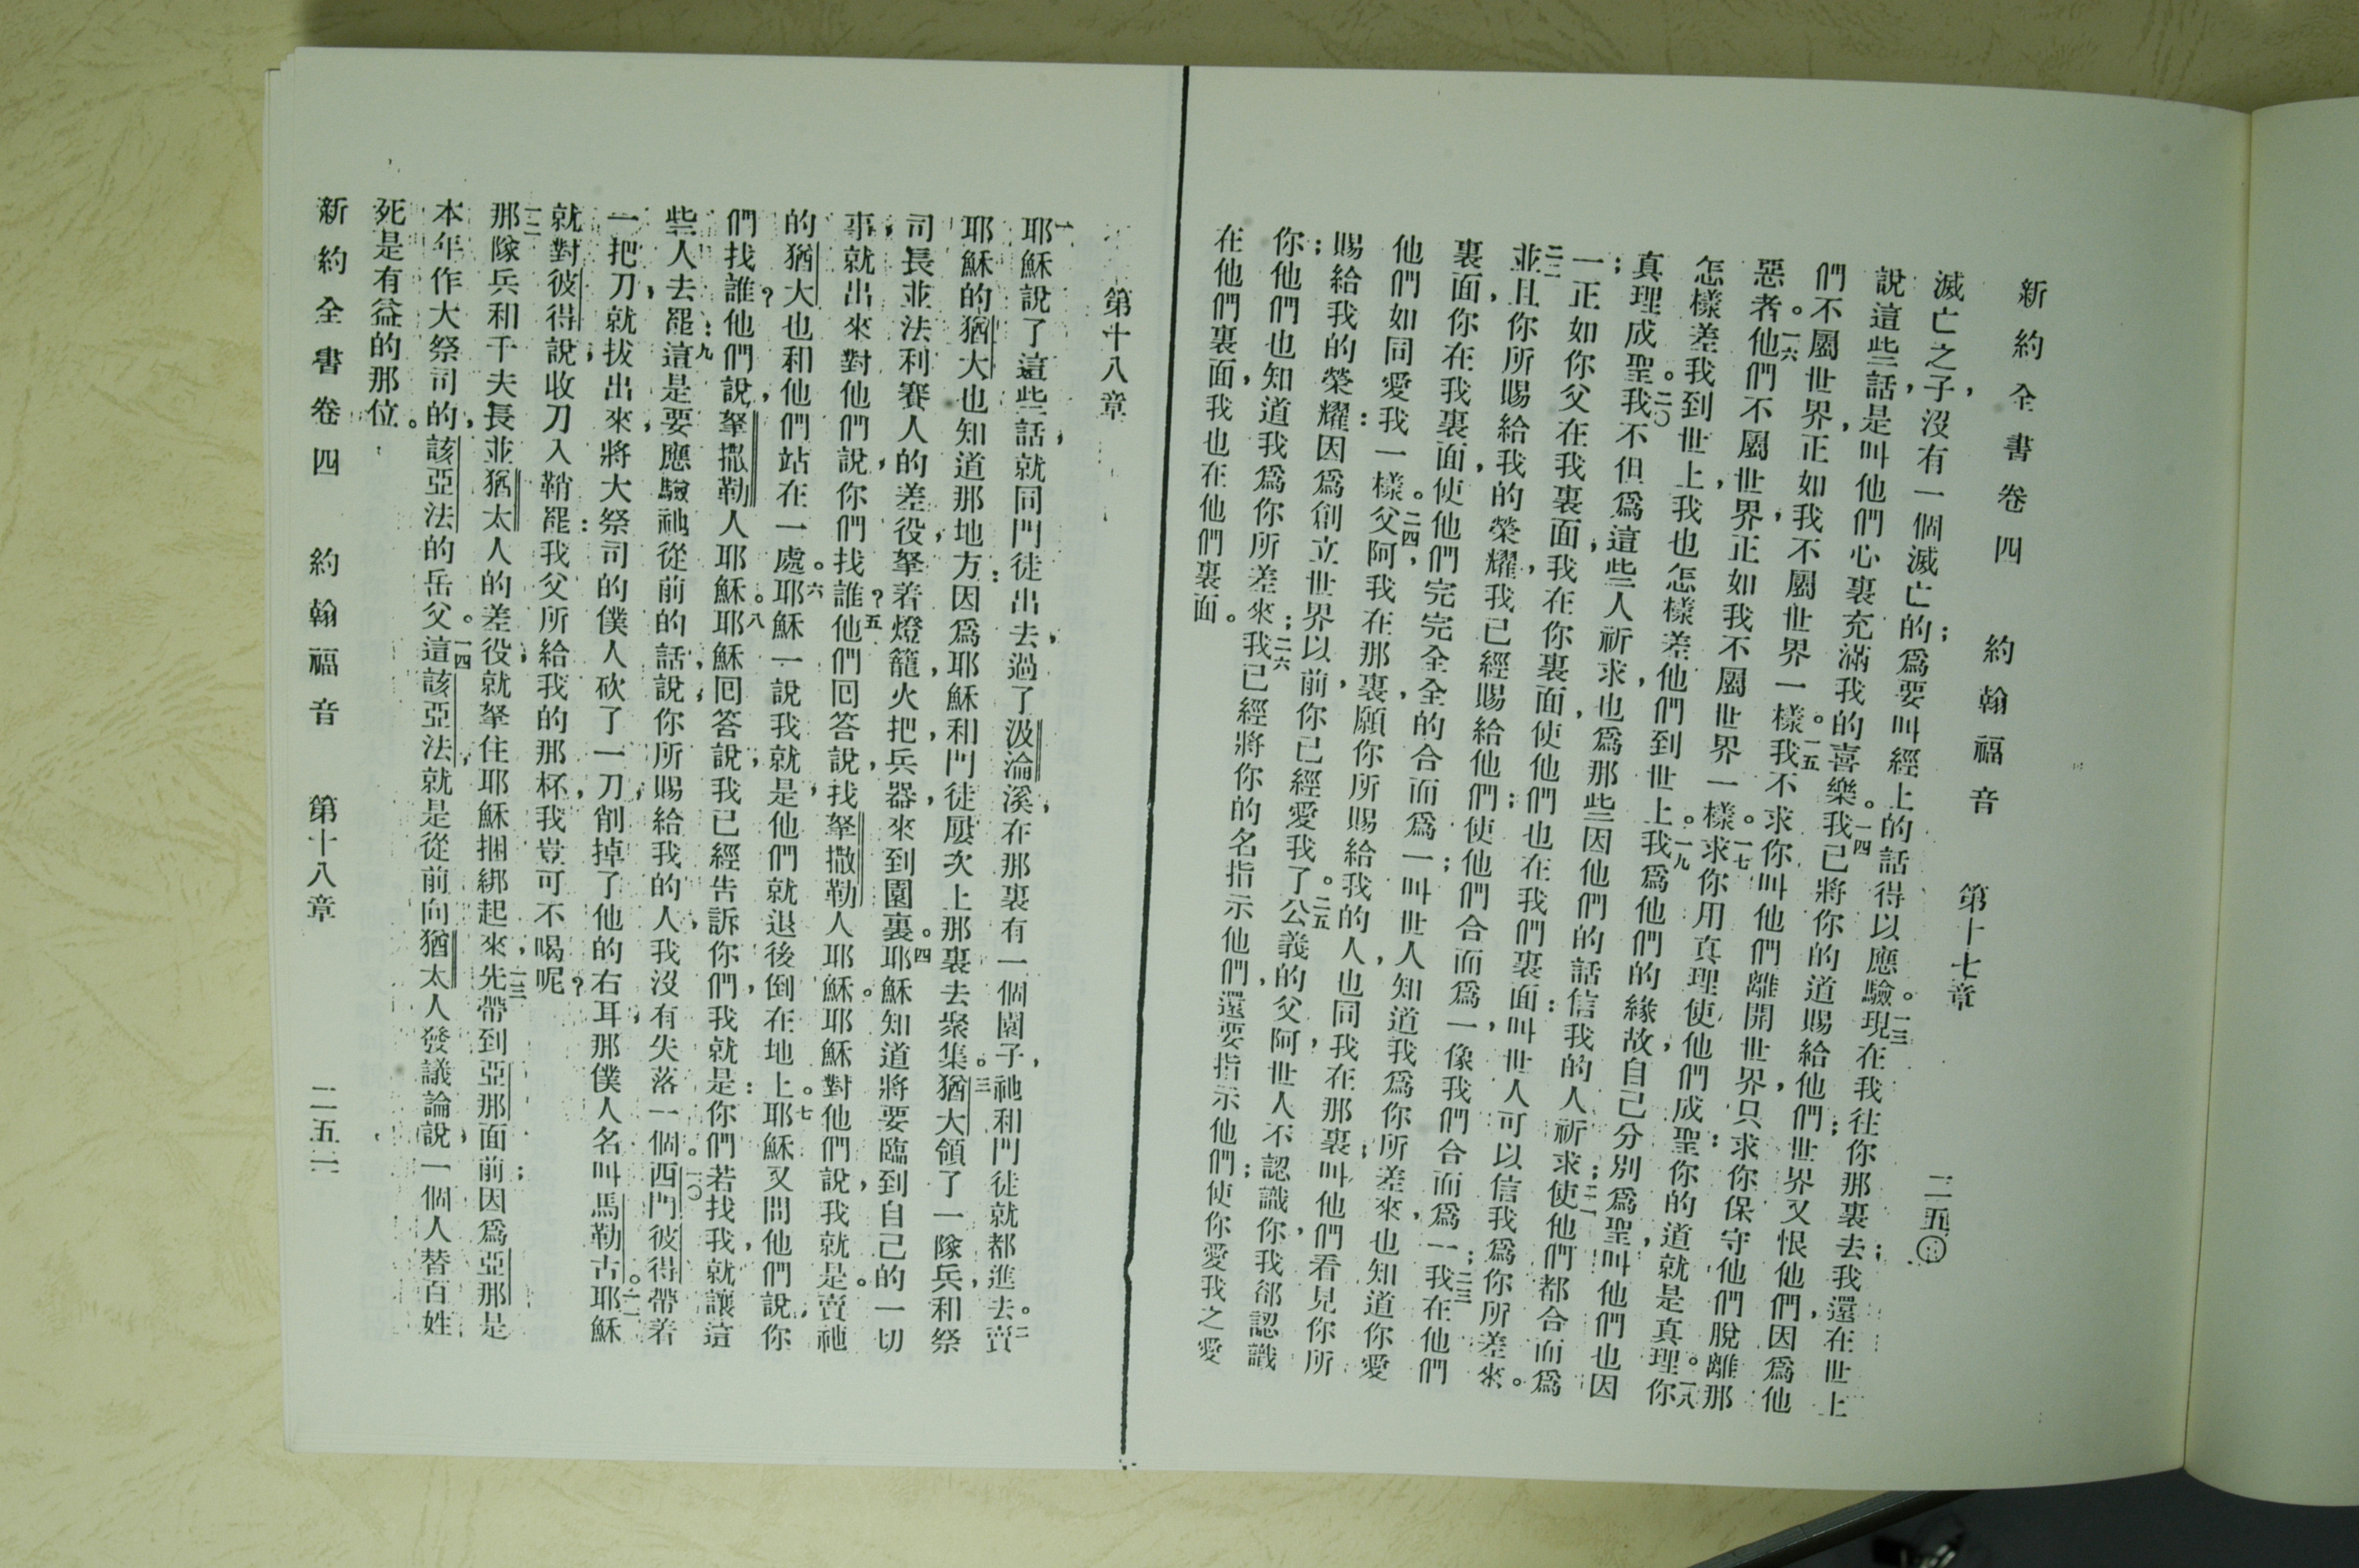 新約全書卷四 約翰福音 第十七章 二五〇
滅亡之子、沒有一個滅亡的；爲要叫經上的話得以應驗。一三現在我往你那裏去；我還在世上
說這些話、是叫他們心裏充滿我的喜樂。一四我已將你的道賜給他們；世界又恨他們、因爲他
們不屬世界、正如我不屬世界一樣。一五我不求你叫他們離開世界、只求你保守他們脫離那
惡者。一六他們不屬世界、正如我不屬世界一樣。一七求你用真理使他們成聖：你的道就是真理。一八你
怎樣差我到世上、我也怎樣差他們到世上。一九我爲他們的緣故、自己分別爲聖、叫他們也因
真理成聖。二〇我不但爲這些人祈求、也爲那些因他們的話信我的人祈求；二一使他們都合而爲
一；正如你父在我裏面、我在你裏面、使他們也在我們裏面：叫世人可以信我爲你所差來。
二二並且你所賜給我的榮耀、我已經賜給他們；使他們合而爲一、像我們合而爲一；二三我在他們
裏面、你在我裏面、使他們完完全全的合而爲一；叫世人知道我爲你所差來、也知道你愛
他們如同愛我一樣。二四父阿、我在那裏、願你所賜給我的人、也同我在那裏；叫他們看見你所
賜給我的榮耀：因爲創立世界以前、你已經愛我了。二五公義的父阿、世人不認識你、我卻認識
你；他們也知道我爲你所差來；二六我已經將你的名指示他們、還要指示他們；使你愛我之愛
在他們裏面、我也在他們裏面。
第十八章
一耶穌說了這些話、就同門徒出去、過了汲淪溪、在那裏有一個園子、祂和門徒就都進去。二賣
耶穌的猶大也知道那地方：因爲耶穌和門徒屢次上那裏去聚集。三猶大領了一隊兵、和祭
司長並法利賽人的差役、拏着燈籠、火把、兵器、來到園裏。四耶穌知道將要臨到自己的一切
事、就出來、對他們說、你們找誰？五他們回答說、找拏撒勒人耶穌。耶穌對他們說、我就是。賣祂
的猶大也和他們站在一處。六耶穌一說我就是、他們就退後倒在地上。七耶穌又問他們說、你
們找誰？他們說、拏撒勒人耶穌。八耶穌回答說、我已經告訴你們、我就是：你們若找我、就讓這
些人去罷：九這是要應驗祂從前的話、說、你所賜給我的人、我沒有失落一個。一〇西門彼得帶着
一把刀、就拔出來、將大祭司的僕人砍了一刀、削掉了他的右耳、那僕人名叫馬勒古。一一耶穌
就對彼得說、收刀入鞘罷：我父所給我的那杯、我豈可不喝呢？
一二那隊兵和千夫長、並猶太人的差役、就拏住耶穌、捆綁起來、一三先帶到亞那面前；因爲亞那是
本年作大祭司的、該亞法的岳父。一四這該亞法、就是從前向猶太人發議論、說、一個人替百姓
死是有益的那位。
新約全書卷四 約翰福音 第十八章 二五一